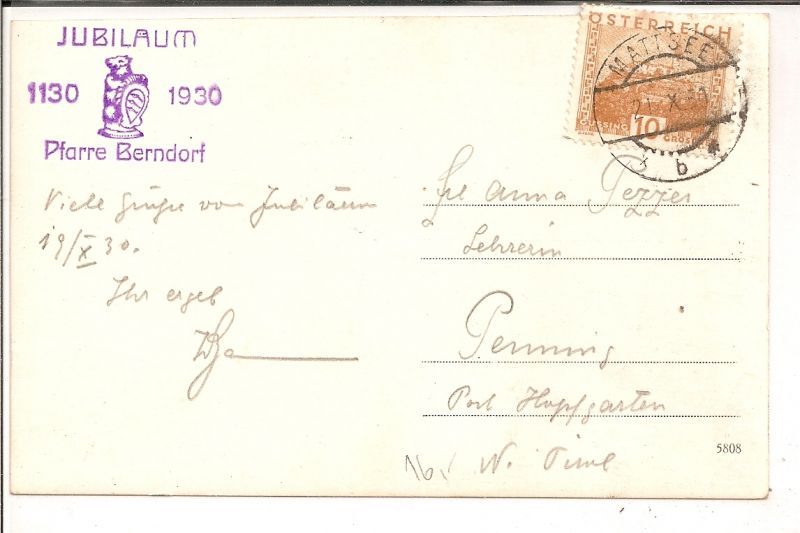 JUBILÄUM
1130 1930
Pfarre Berndorf
Viele Grüße vom Jubiläum
19/X 30.
Ihr ergeb
ÖSTERREICH
GÜSSING 10 GROSCHEN
MATTSEE
21. X. 30
3 b
Frl Anna Pezzei
Lehrerin
Penning
Post Hopfgarten
N. Tirol
5808